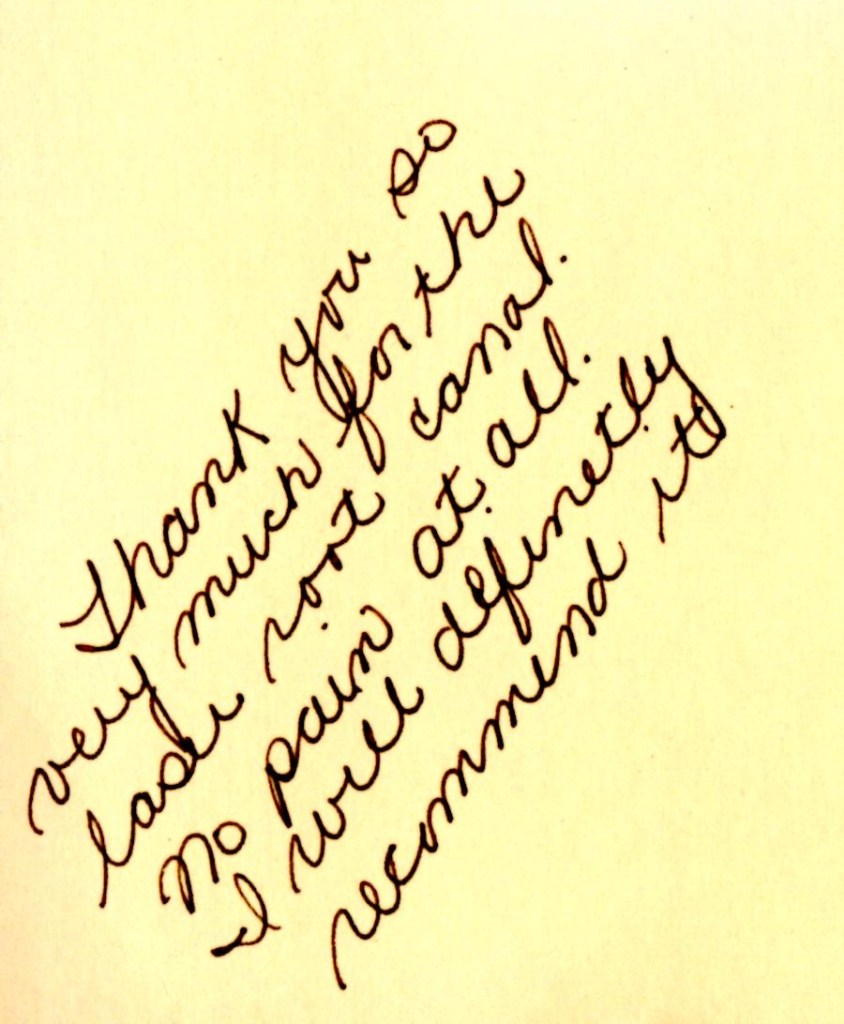 Thank you so
very much for the
laser root canal.
No pain at all.
I will definetly
recommend it